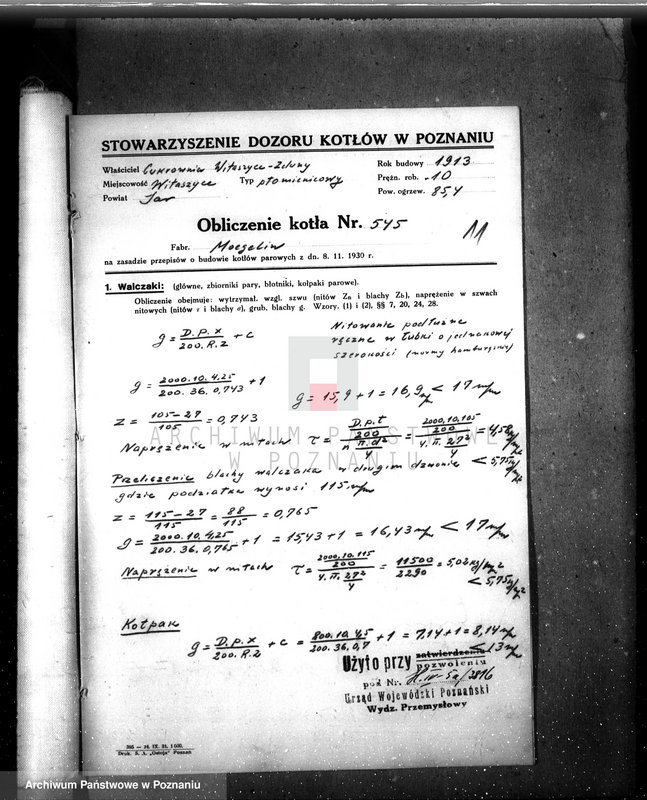 STOWARZYSZENIE DOZORU KOTŁÓW W POZNANIU
Właściciel Cukrownia Witaszyce-Zduny
Rok budowy 1913
Miejscowość Witaszyce Typ płomienicowy
Prężn. rob. 10
Powiat Jar
Pow. ogrzew. 85,4
Obliczenie kotła Nr. 545
11
Fabr. Moegelin
na zasadzie przepisów o budowie kotłów parowych z dn. 8. 11. 1930 r.
1. Walczaki: (główne, zbiorniki pary, błotniki, kołpaki parowe).
Obliczenie obejmuje: wytrzymał. wzgl. szwu (nitów Za i blachy Zb), naprężenie w szwach
nitowych (nitów τ i blachy σ), grub. blachy g. Wzory. (1) i (2), §§ 7, 20, 24, 28.
g = D.p.x / 200.R.z + c
Nitowanie podłużne
ręczne w łubki o jednakowej
szerokości (normy hamburgskie)
g = 2000.10.4,25 / 200.36.0,743 + 1
g = 15,9 + 1 = 16,9 m/m < 17 m/m
z = 105-27 / 105 = 0,743
Naprężenie w nitach τ = D.p.t / 200 / n π.d² / 4 = 2000.10.105 / 200 / 4.π.27² / 4 = 4,58 kg/m/m2
< 5,75 kg/m/m2
Przeliczenie blachy walczaka w drugim dzwonie
gdzie podziałka wynosi 115 m/m
z = 115-27 / 115 = 88 / 115 = 0,765
g = 2000.10.4,25 / 200.36.0,765 + 1 = 15,43 + 1 = 16,43 m/m < 17 m/m
Naprężenie w nitach τ = 2000.10.115 / 200 / 4.π.27² / 4 = 11500 / 2290 = 5,02 kg/m/m2
< 5,75 kg/m/m2
Kołpak
g = D.p.x / 200.R.z + c = 800.10.4,5 / 200.36.0,7 + 1 = 7,14 + 1 = 8,14 m/m
< 13 m/m
Użyto przy zatwierdzeniu
pozwoleniu
pod Nr.
Urząd Wojewódzki Poznański
Wydz. Przemysłowy
395 — 14. IX. 31. 1 000.
Druk. S. A. „Ostoja" Poznań
ARCHIWUM PAŃSTWOWE
W POZNANIU
Archiwum Państwowe w Poznaniu